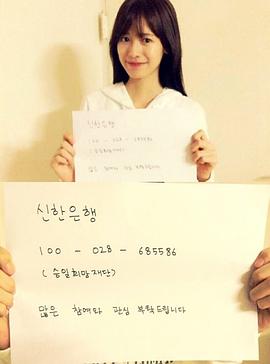 신한은행
100 - 028 - 685586
(승일희망재단)
많은 참여와 관심 부탁드립니다
신한은행
100 - 028 - 685586
(승일희망재단)
많은 참여와 관심 부탁드립니다